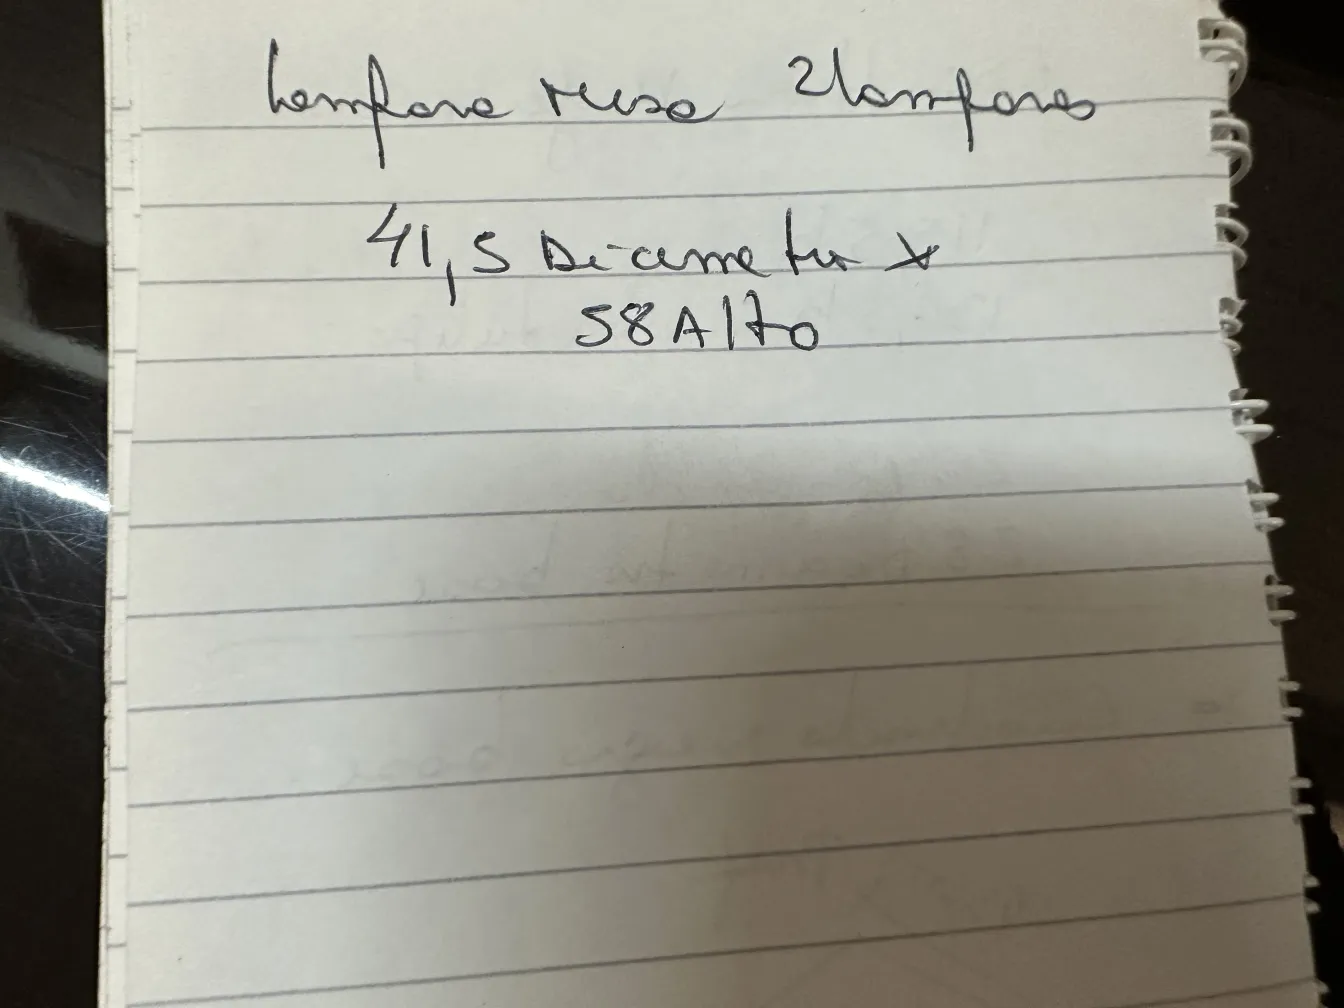 Lampara Mesa 2 lamparas
41,5 Diametro x
58 Alto